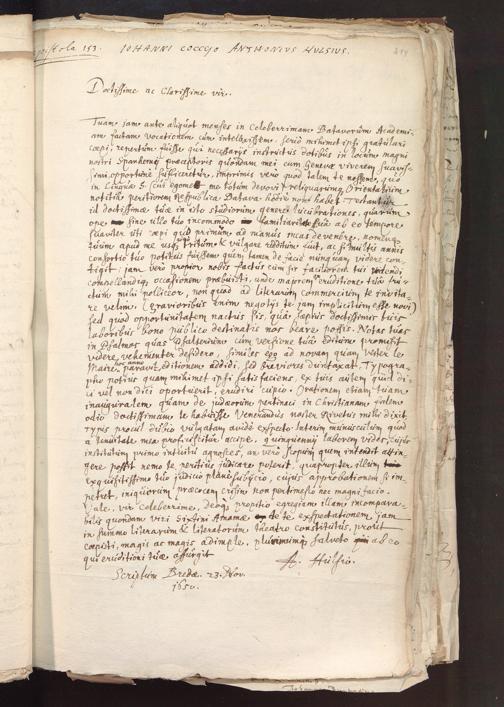 Epistola 153. IOHANNI COCCEJO ANTHONIUS HULSIUS.
Doctissime ac Clarissime vir.
Tuam jam ante aliquot menses in Celeberrimam Batavorum Academi-
am factam vocationem cum intellexissem, serio mihimet ipsi gratulari
cœpi, repertum fuisse qui necessarijs instructus dotibus in locum magni
nostri Spanhemij præceptoris quondam mei cum Genevæ viverem suavis-
simi opportune suffuceretur, imprimis vero quod talem te nossem, quo
in Linguæ S. cui egomet me totum devovi & reliquarum Orientalium
notitia peritiorem Respublica Batava hodie non habet. Testantur
id doctissimæ tuæ in isto studiorum genere lucubrationes, quarum
ope sine ullo tuo incommodo familiaritate tua ab eo tempore
suaviter uti cœpi quo primum ad manus meas devenere, nomen
tuum apud me usq tritum & vulgare redditum fuit, ac si multis annis
consortio tuo potitus fuissem quem tamen de facie nunquam videre con-
tigit: jam vero propior nobis factus cum sis faciliorem tui videndi
consulendiq occasionem præbuisti, unde majorem eruditionis tuæ fru-
ctum mihi polliceor, non quod ad literarum commercium te invita-
re velim (gravioribus enim negotijs te jam implicitum esse novi)
sed quod opportunitatem nactus sis, qua sæpius doctissimis tuis
laboribus bono publico destinatis nos beare possis. Notas tuas
in Psalmos quas Psalterium cum versione tua editum promisit
videre vehementer desidero, similes ego ad novam quam Vester le
Maire hoc anno paravit editionem addidi, sed breviores duntaxat, Typogra-
pho potius quam mihimet ipsi satisfaciens, ex tuis autem quid di-
ci vel non dici oportuerit, erudiri cupio. Orationem etiam tuam
inauguralem quam de judæorum pertinaci in Christianam fidem
odio doctissimam te habuisse Venerandus noster Rivetus mihi dixit
typis procul dubio vulgatam avide exspecto. Interim munusculum quod
a tenuitate mea proficiscitur accipe. Quinquennij laborem vides, cujus
institutum primo intuitu agnosces, an vero scopum quem intendit attin-
gere possit nemo te peritius judicare poterit, quapropter illum
exquisitissimo tuo judicio plane subijcio, cujus approbationem si im-
petret, iniquorum præcocem crisin non pertimesco nec magni facio.
Vale, vir Celeberrime, deoq propitio egregiam illam incompara-
bilis quondam viri Sixtini Amamæ de te exspectationem, jam
in summo literarum & literatorum theatro constitutus, prout
cœpisti, magis ac magis adimple, plurimumq salveto ab eo
qui eruditioni tuæ assurgit
A. Hulsio.
Scriptum Bredæ 23. Nov.
1650.